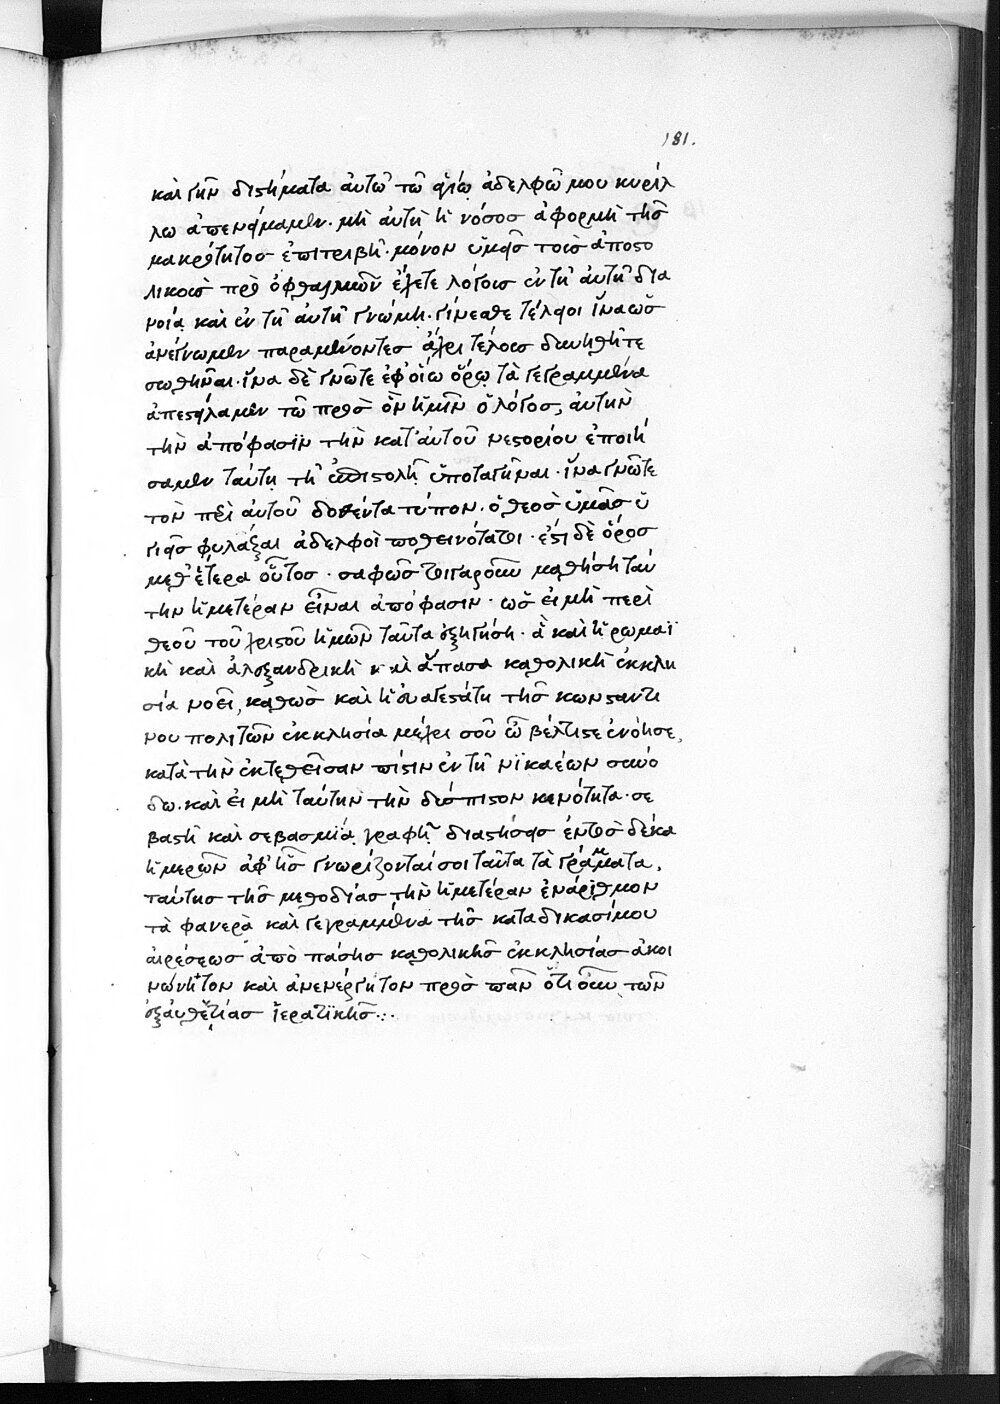 181.
καὶ γὰρ διϊστήματα αὐτῶ τῶ ἁγίω ἀδελφῶ μου κυρίλ
λω ἀπενείμαμεν. μὴ αὐτὴ ἡ νόσος ἀφορμὴ τῆς
μακρότητος ἐπιτριβῆ. μόνον ὑμᾶς τοῖς ἀποστο
λικοῖς πρὸ ὀφθαλμῶν ἔχετε λόγοις ἐν τῆ αὐτῆ δια
νοία καὶ ἐν τῆ αὐτῆ γνώμη. γίνεσθε τέλειοι ἵνα ὡς
ἀνέγνωμεν παραμένοντες ἄχρι τέλους δυνηθῆτε
σωθῆναι. ἵνα δὲ γνῶτε ἐφ' οἵω ὅρω τὰ γεγραμμένα
ἀπεστάλαμεν τῶ πρὸς ὃν ἡμῖν ὁ λόγος, αὐτὴν
τὴν ἀπόφασιν τὴν κατ' αὐτοῦ νεστορίου ἐποιή
σαμεν ταύτη τῆ ἐπιστολῆ ὑποταγῆναι. ἵνα γνῶτε
τὸν περὶ αὐτοῦ δοθέντα τύπον. ὁ θεὸς ὑμᾶς ὑ
γιεῖς φυλάξαι ἀδελφοὶ ποθεινότατοι. ἔστι δὲ ὅρος
μεθ' ἕτερα οὗτος. σαφῶς τοιγαροῦν μαθήση ταύ
την ἡμετέραν εἶναι ἀπόφασιν. ὡς εἰ μὴ περὶ
θεοῦ τοῦ χριστοῦ ἡμῶν ταῦτα ἐξηγήση. ἃ καὶ ἡ ρωμαϊ
κὴ καὶ ἀλεξανδρικὴ καὶ ἅπασα καθολικὴ ἐκκλη
σία νοεῖ, καθὼς καὶ ἡ εὐαγεστάτη τῆς κωνσταντι
νουπολιτῶν ἐκκλησία μέχρι σοῦ ὦ βέλτιστε ἐνόησε,
κατὰ τὴν ἐκτεθεῖσαν πίστιν ἐν τῆ νικαέων συνό
δω. καὶ εἰ μὴ ταύτην τὴν δύσπιστον κενότητα. σε
βαστῆ καὶ σεβασμία γραφῆ διαστήσας ἐντὸς δέκα
ἡμερῶν ἀφ' ἧς γνωρίζονταί σοι ταῦτα τὰ γράμματα,
ταύτης τῆς μεθοδίας τὴν ἡμετέραν ἐνάριθμον
τὰ φανερὰ καὶ γεγραμμένα τῆς καταδικασίμου
αἱρέσεως ἀπὸ πάσης καθολικῆς ἐκκλησίας ἀκοι
νώνητον καὶ ἀνενέργητον πρὸς πᾶν ὁτιοῦν τῶν
ἐξ αὐθεντίας ἱερατικῆς...